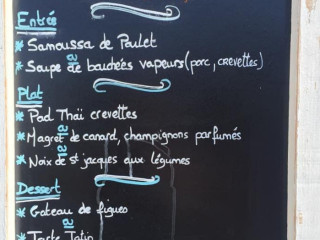 Entrée
* Samoussa de Poulet
ou
* Soupe de bouchées vapeurs (porc, crevettes)
Plat
* Pad Thaï crevettes
ou
* Magret de canard, champignons parfumés
ou
* Noix de St Jacques aux légumes
Dessert
* Gateau de figues
ou
* Tarte Tatin